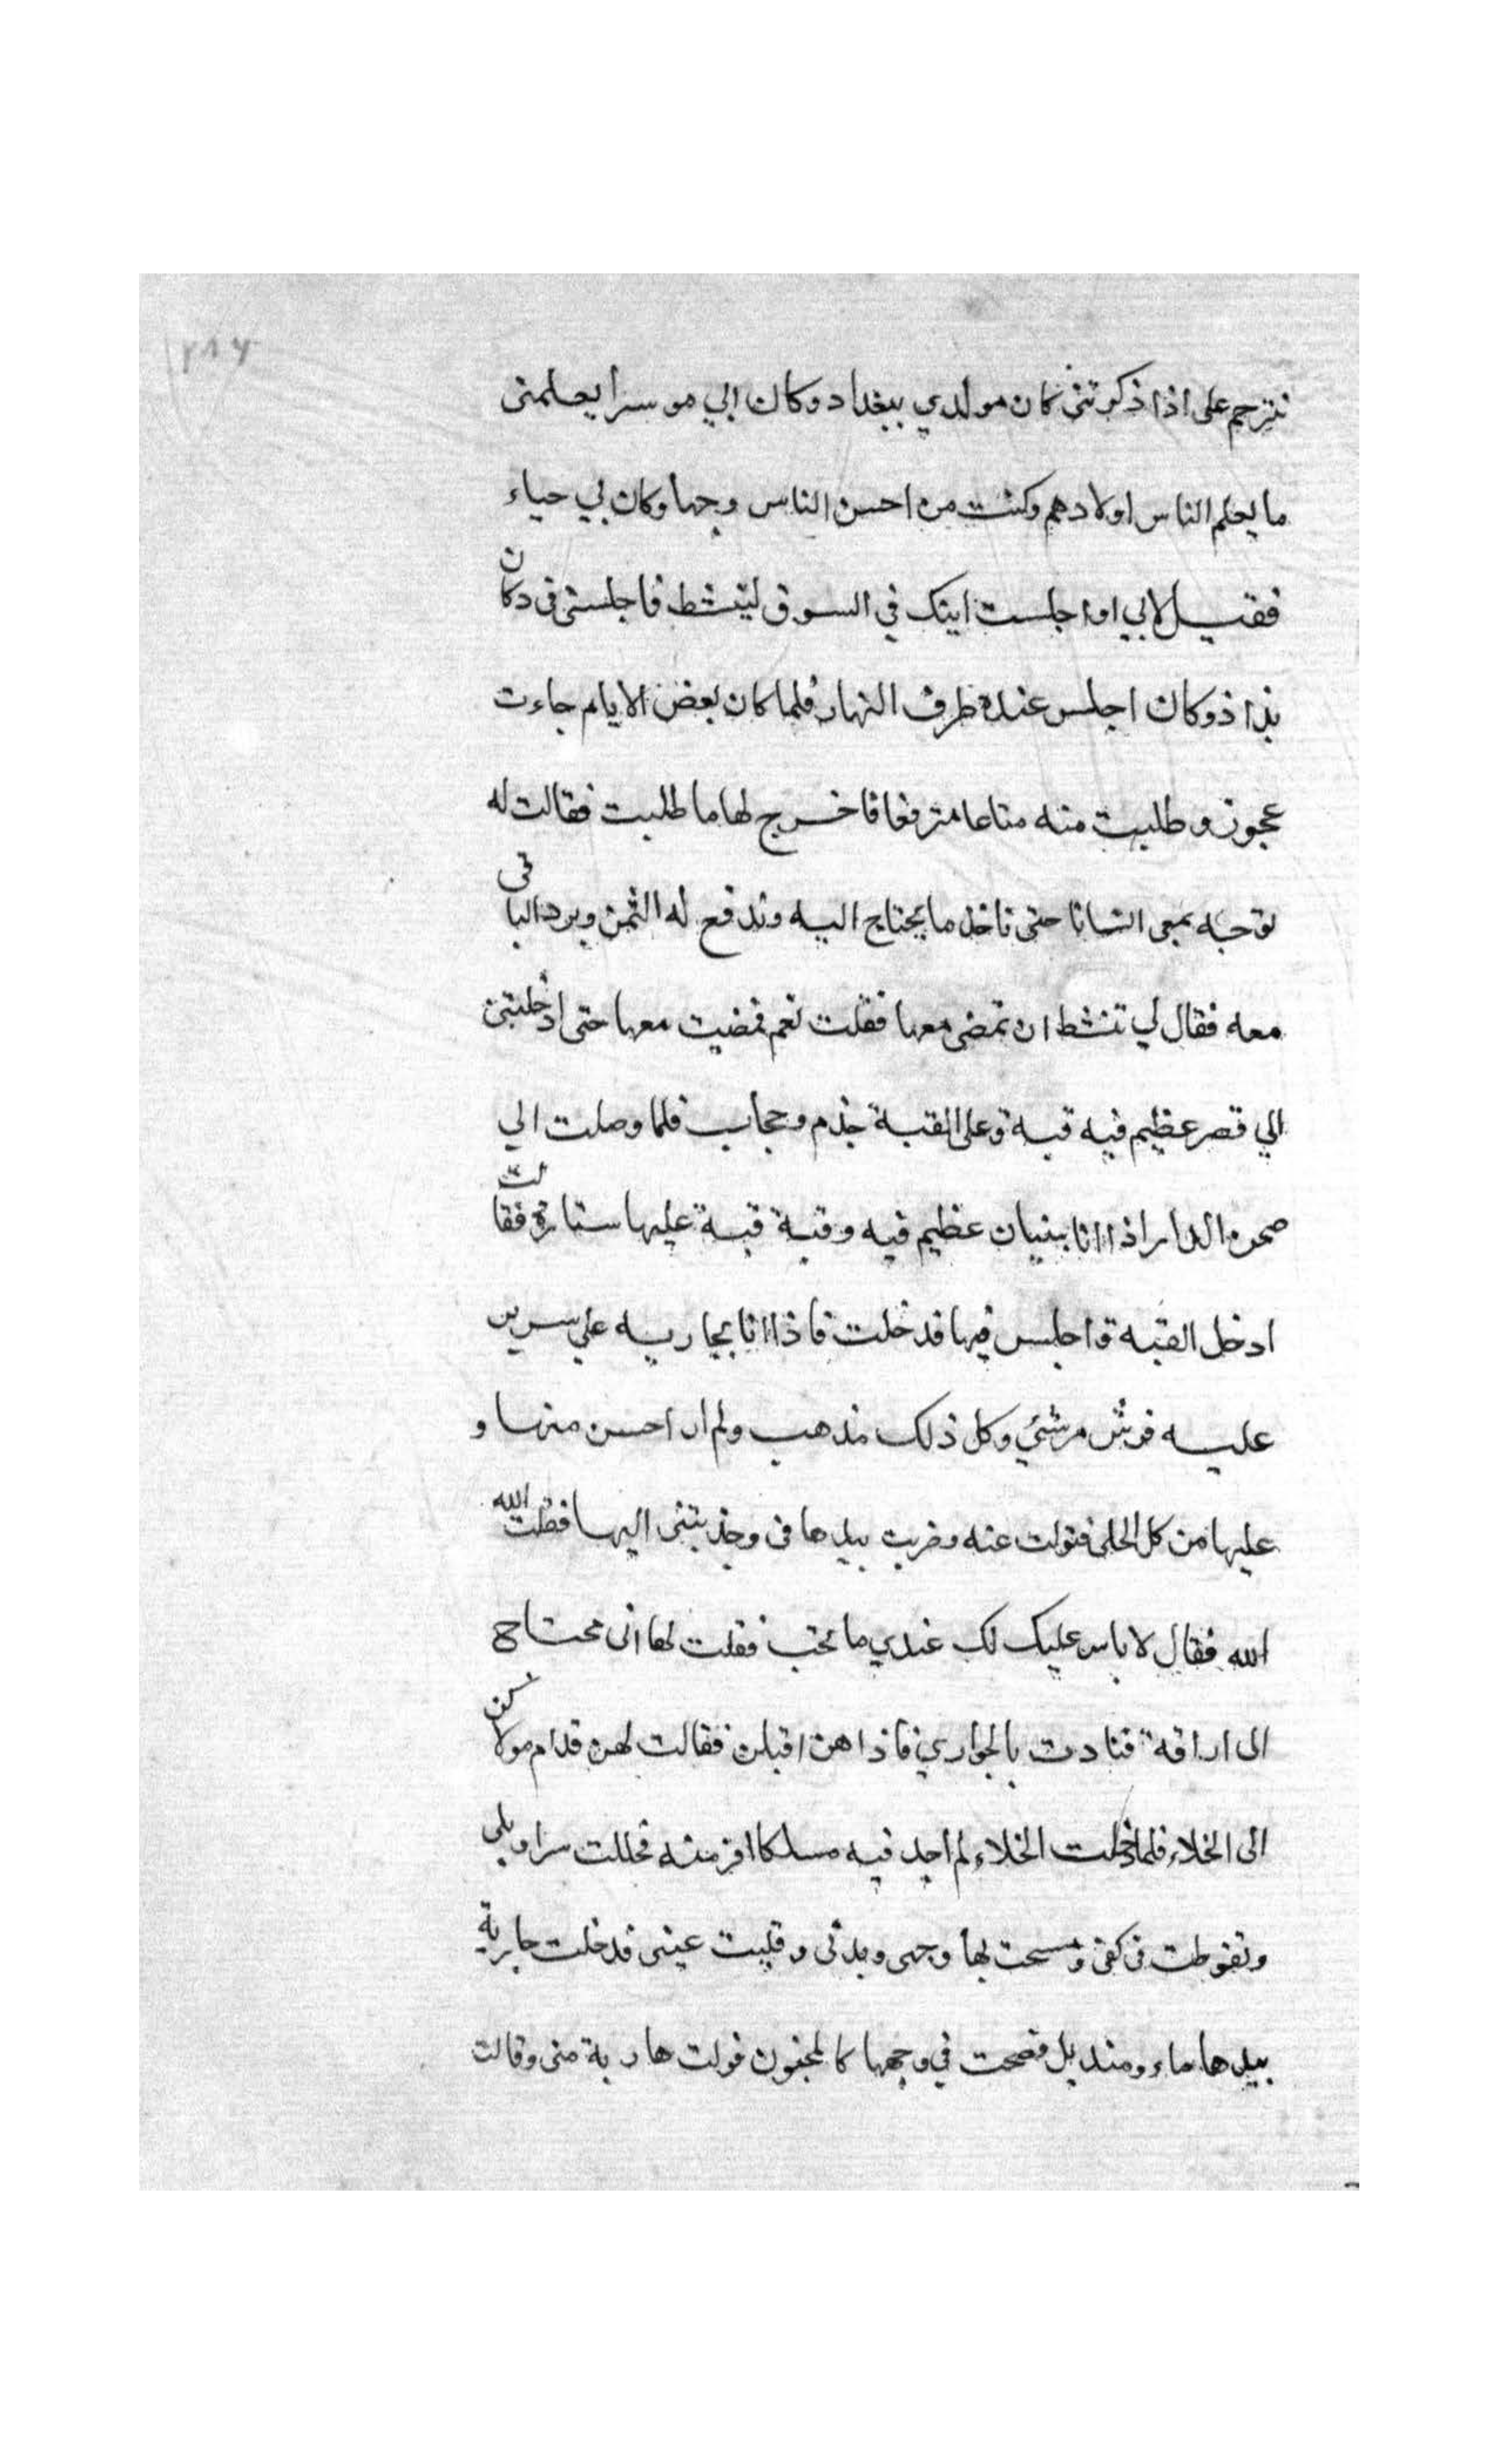 ٢٨٦
تترحم على اذا ذكرتنى كان مولدي ببغداد وكان ابي موسرا يعلمنى
ما يعلم الناس اولادهم وكنت من احسن الناس وجها وكان لي حياء
فقيل لابي اوا جلست ابنك في السوق لينشط فاجلسنى فى دكان
بذاذ وكان اجلس عنده طرف النهار فلما كان بعض الايام جاءت
عجوز وطلبت منه متاعا مترفعا فاخرج لها ما طلبت فقالت له
توجه بمعى انسانا حتى ناخذ ما يحتاج اليه وندفع له الثمن ويرد الباقى
معه فقال لي تنشط ان تمضى معها فقلت نعم فمضيت معها حتى ادخلتنى
الي قصر عظيم فيه قبة وعلى القبة خدم وحجاب فلما وصلت الي
صحن الدار اذا انا ببنيان عظيم فيه وقبة قبة عليها ستارة فقالت
ادخل القبه واجلس فيها فدخلت فاذا انا بجاريه علي سرير
عليه فرش مرشي وكل ذلك مذهب ولم ار احسن منها و
عليها من كل الحلى فنولت عنه وضربت بيدها فى وجذبتنى اليها فقلت الله
الله فقال لا باس عليك لك عندي ما تحب فقلت لها انى محتاج
الى اراقة فنادت بالجواري فاذا هن اقبلن فقالت لهن قدام مولاكن
الى الخلاء فلما دخلت الخلاء لم اجد فيه مسلكا افر منه فحللت سراويلى
وتغوطت فى كفى ومسحت بها وجهى وبدنى وقلبت عينى فدخلت جارية
بيدها ماء ومنديل فصحت في وجهها كالمجنون فولت هاربة منى وقالت